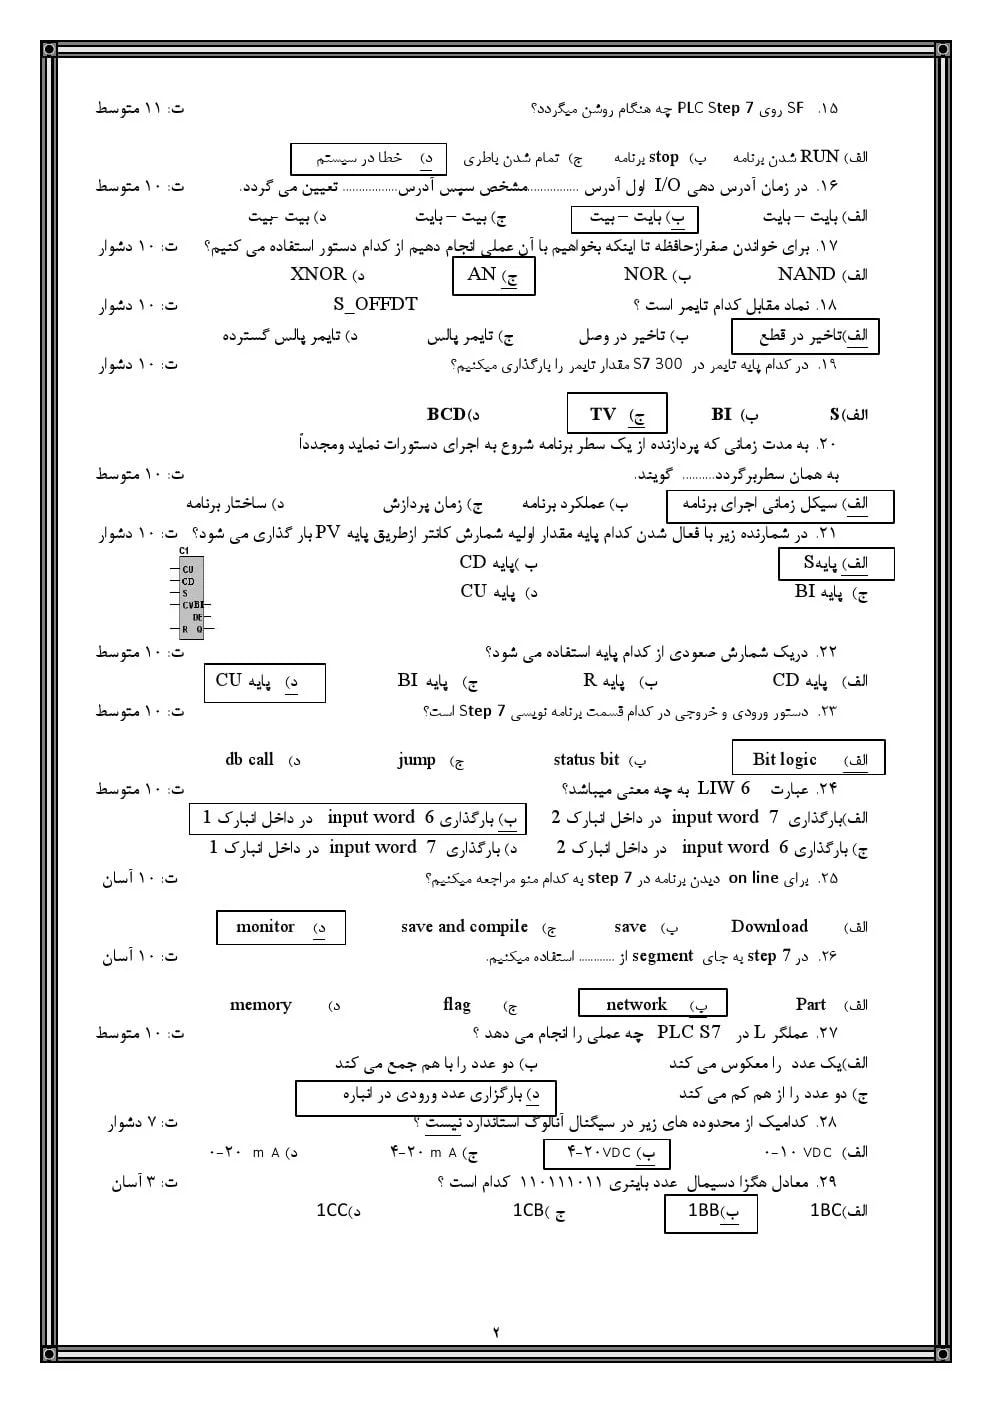 ۱۵. SF روی PLC Step 7 چه هنگام روشن میگردد؟ ت: ۱۱ متوسط
الف) RUN شدن برنامه ب) stop برنامه ج) تمام شدن باطری د) خطا در سیستم
۱۶. در زمان آدرس دهی I/O اول آدرس ................مشخص سپس آدرس................. تعیین می گردد. ت: ۱۰ متوسط
الف) بایت – بایت ب) بایت – بیت ج) بیت – بایت د) بیت -بیت
۱۷. برای خواندن صفرازحافظه تا اینکه بخواهیم با آن عملی انجام دهیم از کدام دستور استفاده می کنیم؟ ت: ۱۰ دشوار
الف) NAND ب) NOR ج) AN د) XNOR
۱۸. نماد مقابل کدام تایمر است ؟ S_OFFDT ت: ۱۰ دشوار
الف)تاخیر در قطع ب) تاخیر در وصل ج) تایمر پالس د) تایمر پالس گسترده
۱۹. در کدام پایه تایمر در S7 300 مقدار تایمر را بارگذاری میکنیم؟ ت: ۱۰ دشوار
الف)S ب) BI ج) TV د)BCD
۲۰. به مدت زمانی که پردازنده از یک سطر برنامه شروع به اجرای دستورات نماید ومجدداً
به همان سطربرگردد.......... گویند. ت: ۱۰ متوسط
الف) سیکل زمانی اجرای برنامه ب) عملکرد برنامه ج) زمان پردازش د) ساختار برنامه
۲۱. در شمارنده زیر با فعال شدن کدام پایه مقدار اولیه شمارش کانتر ازطریق پایه PV بار گذاری می شود؟ ت: ۱۰ دشوار
الف) پایهS ب )پایه CD
ج) پایه BI د) پایه CU
C1
CU
CD
S
CV BI
DE
R Q
۲۲. دریک شمارش صعودی از کدام پایه استفاده می شود؟ ت: ۱۰ متوسط
الف) پایه CD ب) پایه R ج) پایه BI د) پایه CU
۲۳. دستور ورودی و خروجی در کدام قسمت برنامه نویسی Step 7 است؟ ت: ۱۰ متوسط
الف) Bit logic ب) status bit ج) jump د) db call
۲۴. عبارت LIW 6 به چه معنی میباشد؟ ت: ۱۰ متوسط
الف)بارگذاری input word 7 در داخل انبارک 2 ب) بارگذاری input word 6 در داخل انبارک 1
ج) بارگذاری input word 6 در داخل انبارک 2 د) بارگذاری input word 7 در داخل انبارک 1
۲۵. برای on line دیدن برنامه در step 7 به کدام منو مراجعه میکنیم؟ ت: ۱۰ آسان
الف) Download ب) save ج) save and compile د) monitor
۲۶. در step 7 به جای segment از ............ استفاده میکنیم. ت: ۱۰ آسان
الف) Part ب) network ج) flag د) memory
۲۷. عملگر L در PLC S7 چه عملی را انجام می دهد ؟ ت: ۱۰ متوسط
الف)یک عدد را معکوس می کند ب) دو عدد را با هم جمع می کند
ج) دو عدد را از هم کم می کند د) بارگزاری عدد ورودی در انباره
۲۸. کدامیک از محدوده های زیر در سیگنال آنالوگ استاندارد نیست ؟ ت: ۷ دشوار
الف) ۰-۱۰ VDC ب) ۴-۲۰VDC ج) ۴-۲۰ mA د) ۰-۲۰ mA
۲۹. معادل هگزا دسیمال عدد باینری ۱۱۰۱۱۱۰۱۱ کدام است ؟ ت: ۳ آسان
الف)1BC ب)1BB ج )1CB د)1CC
۲